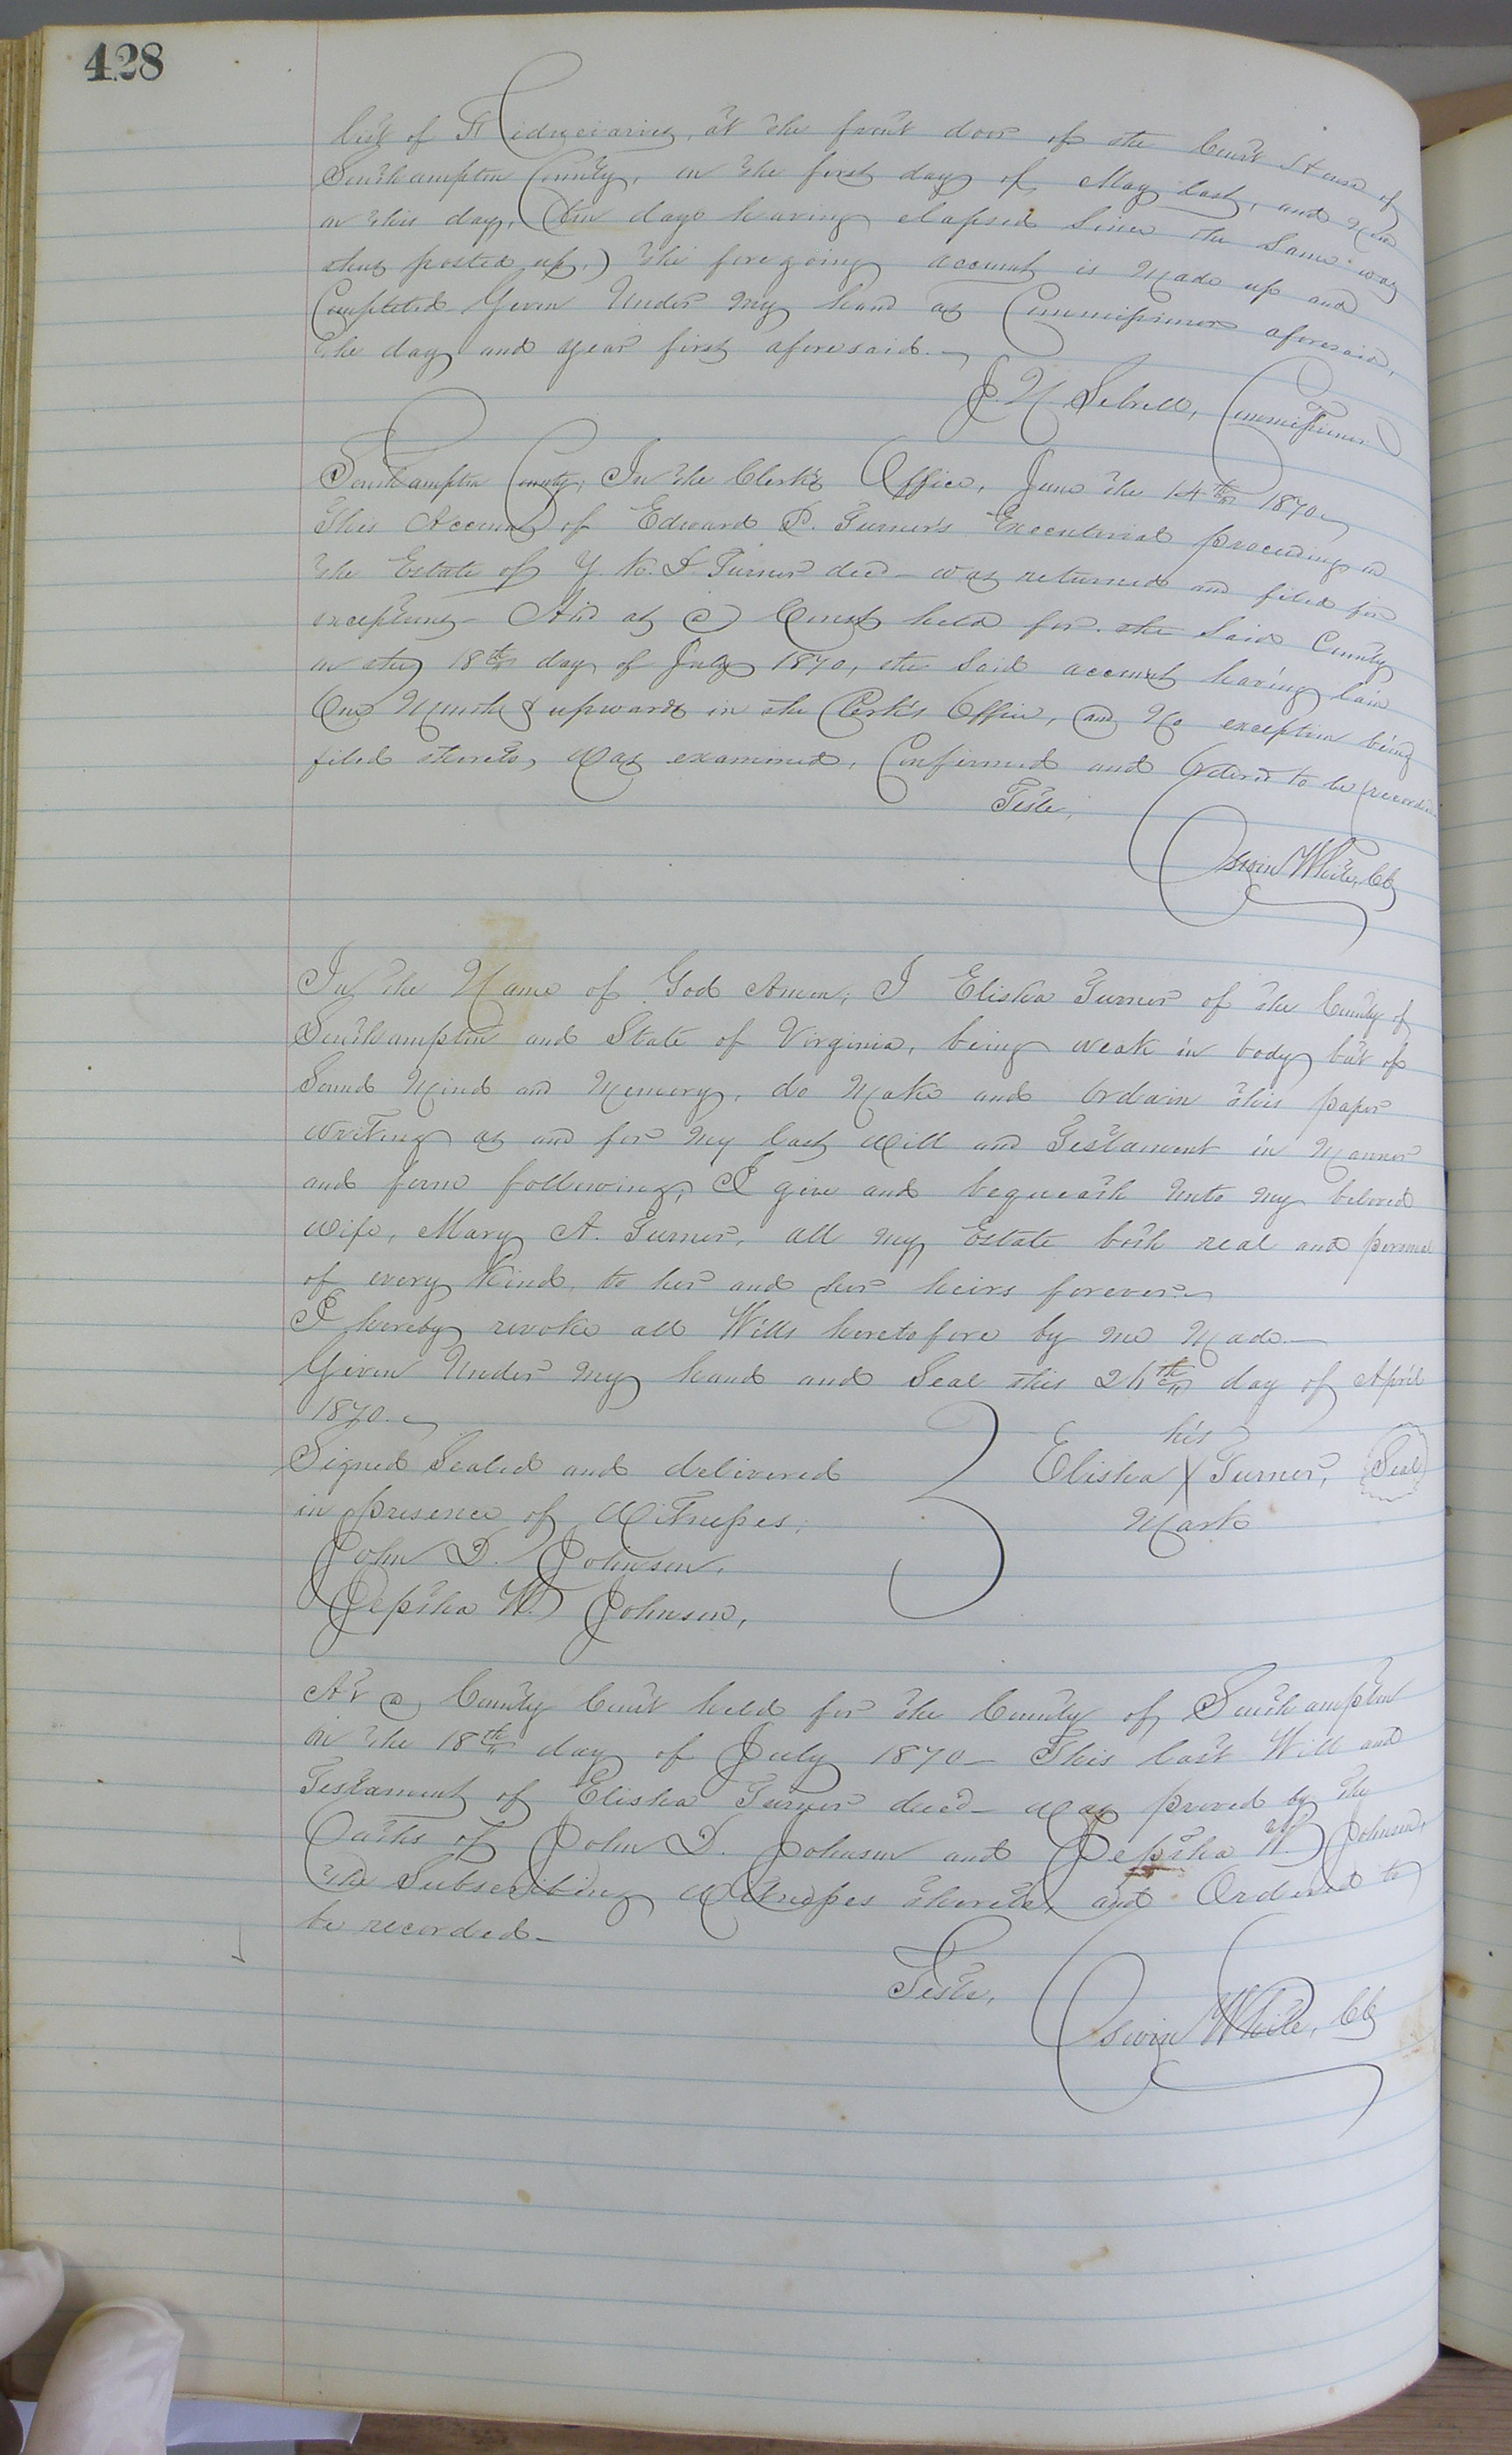 428
list of Fiduciaries, at the front door of the Court House of
Southampton County, on the first day of May last, and now
on this day, (ten days having elapsed since the same was
thus posted up,) the foregoing account is made up and
Completed Given Under my hand as Commissioner aforesaid,
the day and year first aforesaid.
J. N. Sebrell, Commissioner
Southampton County, In the Clerk's Office, June the 14th 1870
This Account of Edward P. Turner's Executorial proceedings on
the Estate of Y. K. D. Turner decd - was returned and filed for
exceptions - And at a Court held for the said County
on the 18th day of July 1870, the said account having lain
One Month & upwards in the Clerk's Office, and No exception being
filed thereto, Was examined, Confirmed and Ordered to be recorded
Teste,
Oswin White, Clk
In the Name of God Amen; I Elisha Turner of the County of
Southampton and State of Virginia, being weak in body but of
Sound Mind and Memory, do Make and Ordain this paper
writing as and for my last Will and Testament in Manner
and form following, I give and bequeath unto my beloved
Wife, Mary A. Turner, all my Estate both real and personal
of every Kind, to her and her heirs forever
I hereby revoke all Wills heretofore by me Made.
Given Under my hand and Seal this 24th day of April
1870.
his
Signed Sealed and delivered Elisha X Turner, Seal
in presence of Witnesses; Mark
John D. Johnson,
Jeptha W. Johnson,
At a County Court held for the County of Southampton
on the 18th day of July 1870 - This last Will and
Testament of Elisha Turner decd - was proved by the
Oaths of John D. Johnson and Jeptha W. Johnson,
the Subscribing Witnesses thereto, and Ordered to
be recorded -
Teste,
Oswin White, Clk